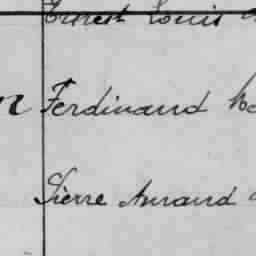 Ernest Louis
n Ferdinand
Pierre Amand